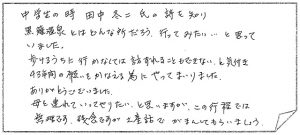 中学生の時 田中冬二氏の詩を知り
黒薙温泉とはどんな所だろう、行ってみたい…と思って
いました。
歩けるうちに行かなくては話すことすらできない、と気付き
43年間の想いをかなえる為にやってまいりました。
ありがとうございました。
母を連れていってやりたい、と思いますが、この行程では
無理です。残念ですが土産話でがまんしてもらいましょう。